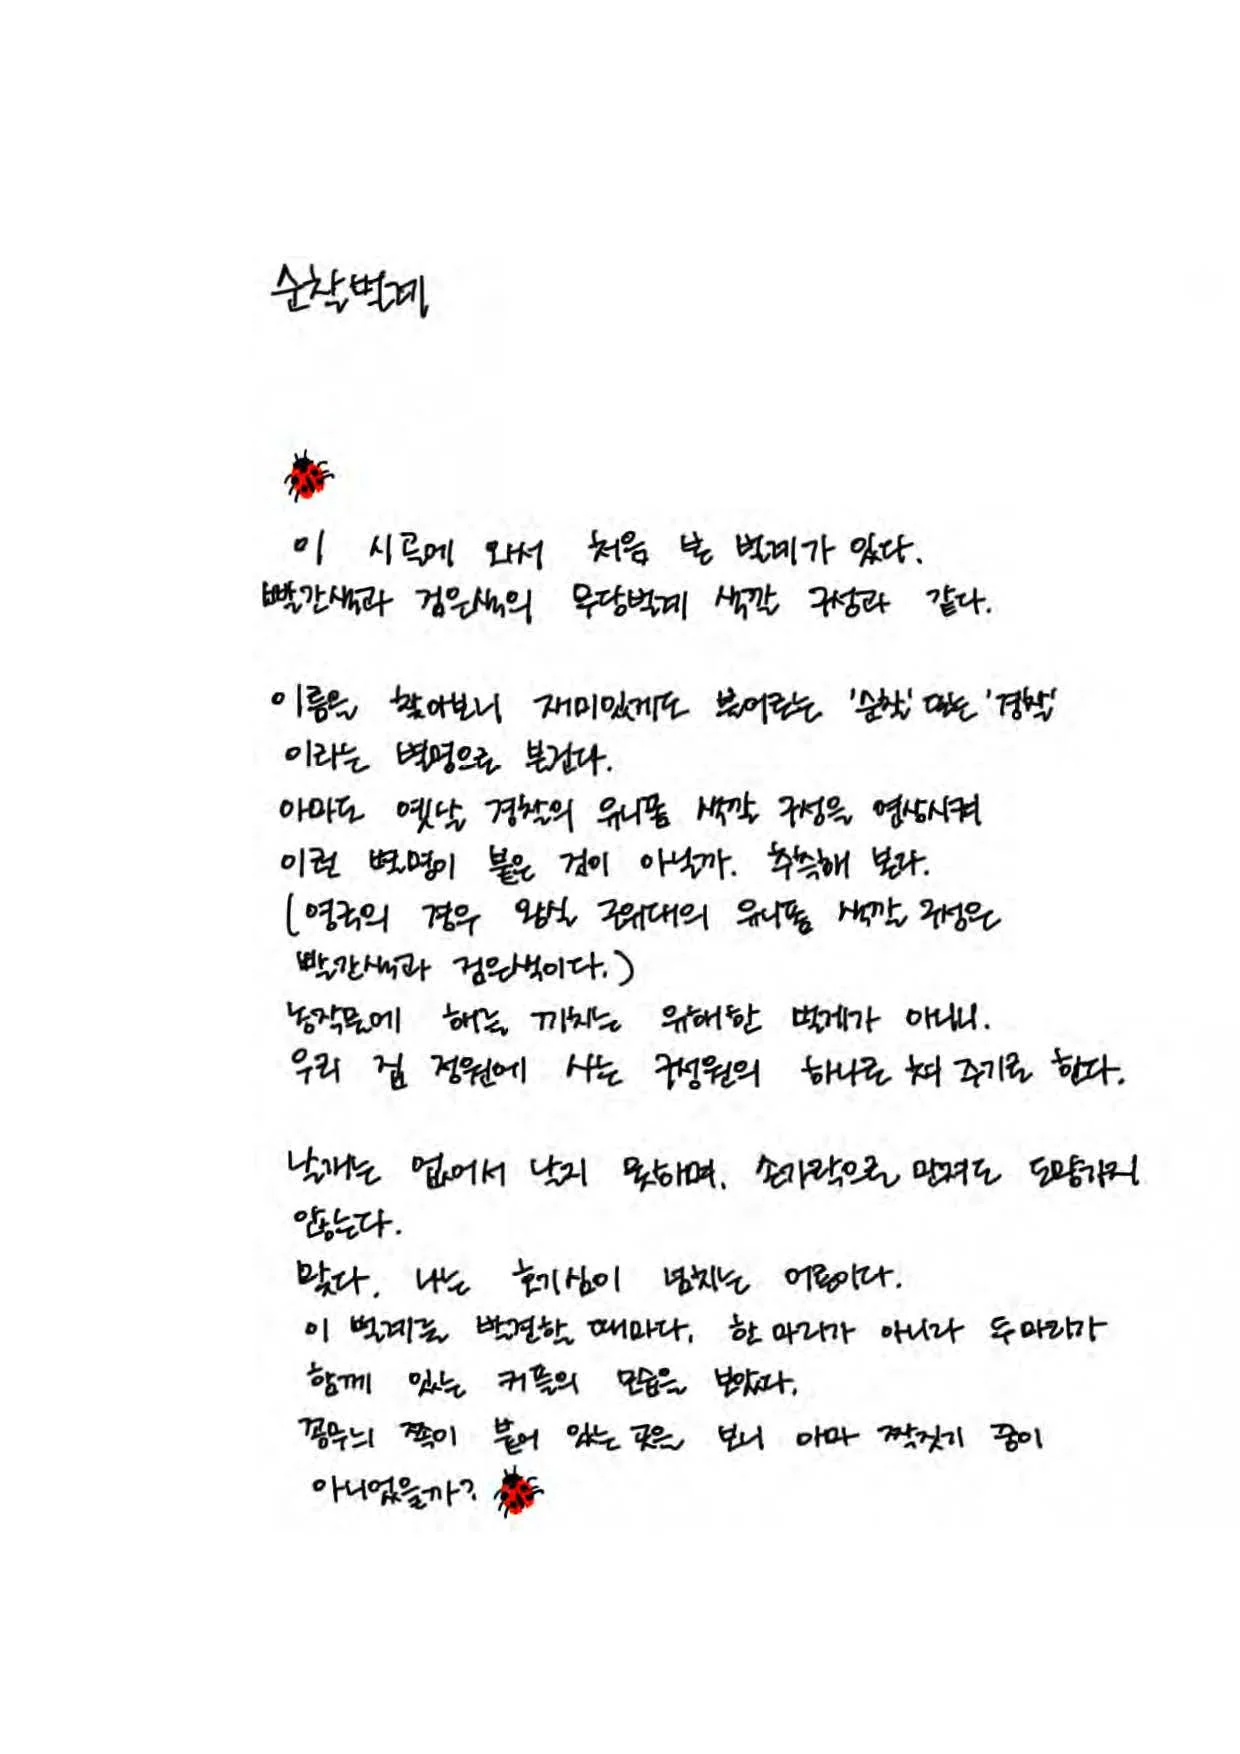 순찰벌레
이 시골에 와서 처음 본 벌레가 있다.
빨간색과 검은색의 무당벌레 색깔 구성과 같다.
이름을 찾아보니 재미있게도 불어로는 '순찰' 또는 '경찰'
이라는 별명으로 불린다.
아마도 옛날 경찰의 유니폼 색깔 구성을 연상시켜
이런 별명이 붙은 것이 아닐까. 추측해 본다.
(영국의 경우 왕실 근위대의 유니폼 색깔 구성은
빨간색과 검은색이다.)
농작물에 해를 끼치는 유해한 벌레가 아니니.
우리 집 정원에 사는 구성원의 하나로 쳐 주기로 한다.
날개는 없어서 날지 못하며, 손가락으로 만져도 도망가지
않는다.
맞다. 나는 호기심이 넘치는 어른이다.
이 벌레를 발견할 때마다, 한 마리가 아니라 두 마리가
함께 있는 커플의 모습을 보았다.
꽁무늬 쪽이 붙어 있는 곳을 보니 아마 짝짓기 중이
아니었을까?